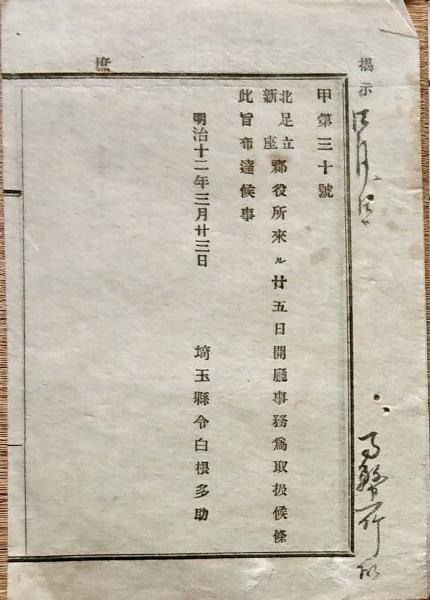 掲示
甲第三十號
北足立新座郡役所來ル廿五日開廳事務爲取扱候條
此旨布達候事
明治十二年三月廿三日
埼玉縣令白根多助
庶